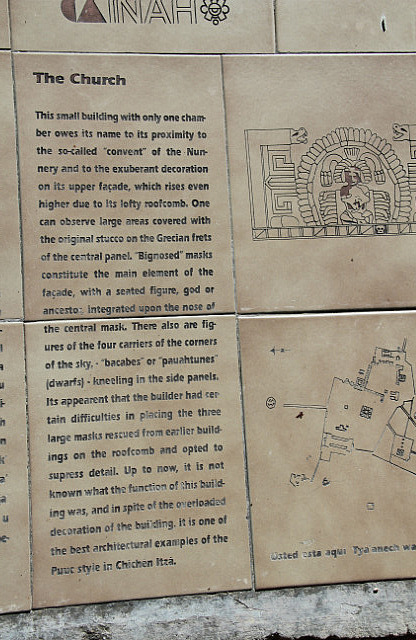 INAH
The Church
This small building with only one cham-
ber owes its name to its proximity to
the so-called "convent" of the Nun-
nery and to the exuberant decoration
on its upper façade, which rises even
higher due to its lofty roofcomb. One
can observe large areas covered with
the original stucco on the Grecian frets
of the central panel. "Bignosed" masks
constitute the main element of the
façade, with a seated figure, god or
ancestor integrated upon the nose of
the central mask. There also are fig-
ures of the four carriers of the corners
of the sky, - "bacabes" or "pauahtunes"
(dwarfs) - kneeling in the side panels.
Its appearent that the builder had cer-
tain difficulties in placing the three
large masks rescued from earlier build-
ings on the roofcomb and opted to
supress detail. Up to now, it is not
known what the function of this build-
ing was, and in spite of the overloaded
decoration of the building, it is one of
the best architectural examples of the
Puuc style in Chichen Itza.
Usted esta aqui